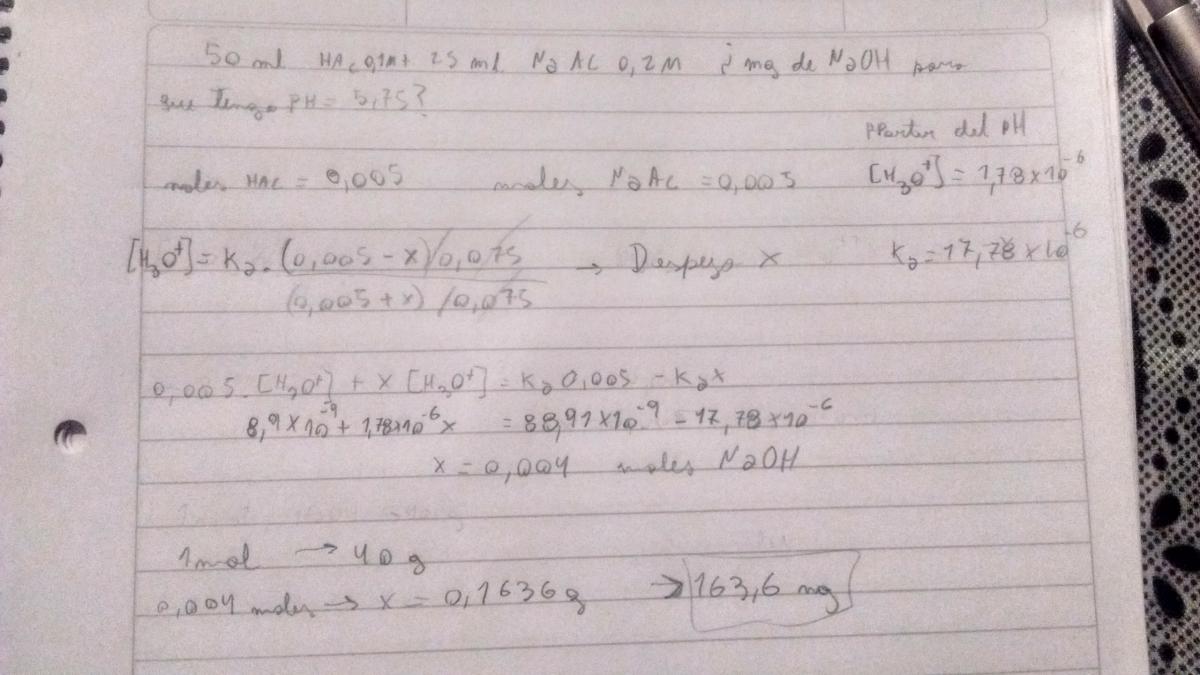 50 ml HAc 0,1M + 25 ml NaAC 0,2M ¿mg de NaOH para
que tenga PH = 5,75?
PPartir del pH
moles HAC = 0,005 moles NaAC = 0,005 [H3O+] = 1,78x10^-6
[H3O+] = Ka. (0,005 - x)/0,075 → Despejo x Ka = 17,78 x 10^-6
(0,005 + x) /0,075
0,005. [H3O+] + x [H3O+] = Ka 0,005 - Kax
8,9 x 10^-9 + 1,78x10^-6 x = 88,91x10^-9 - 17,78x10^-6
x = 0,004 moles NaOH
1 mol → 40 g
0,004 moles → x = 0,1636 g → 163,6 mg